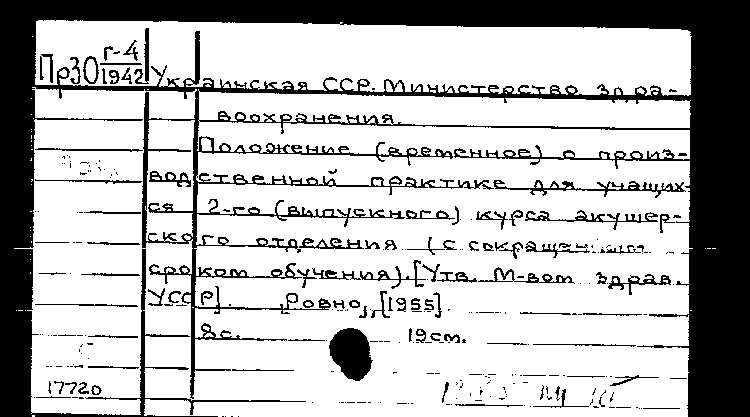 Пр30 г-4/1942
Украинская ССР. Министерство здра-
воохранения.
Положение (временное) о произ-
водственной практике для учащих-
ся 2-го (выпускного) курса акушер-
ского отделения (с сокращенным
сроком обучения). [Утв. М-вом здрав.
УССР]. Ровно, [1955].
8с. 19см.
17720